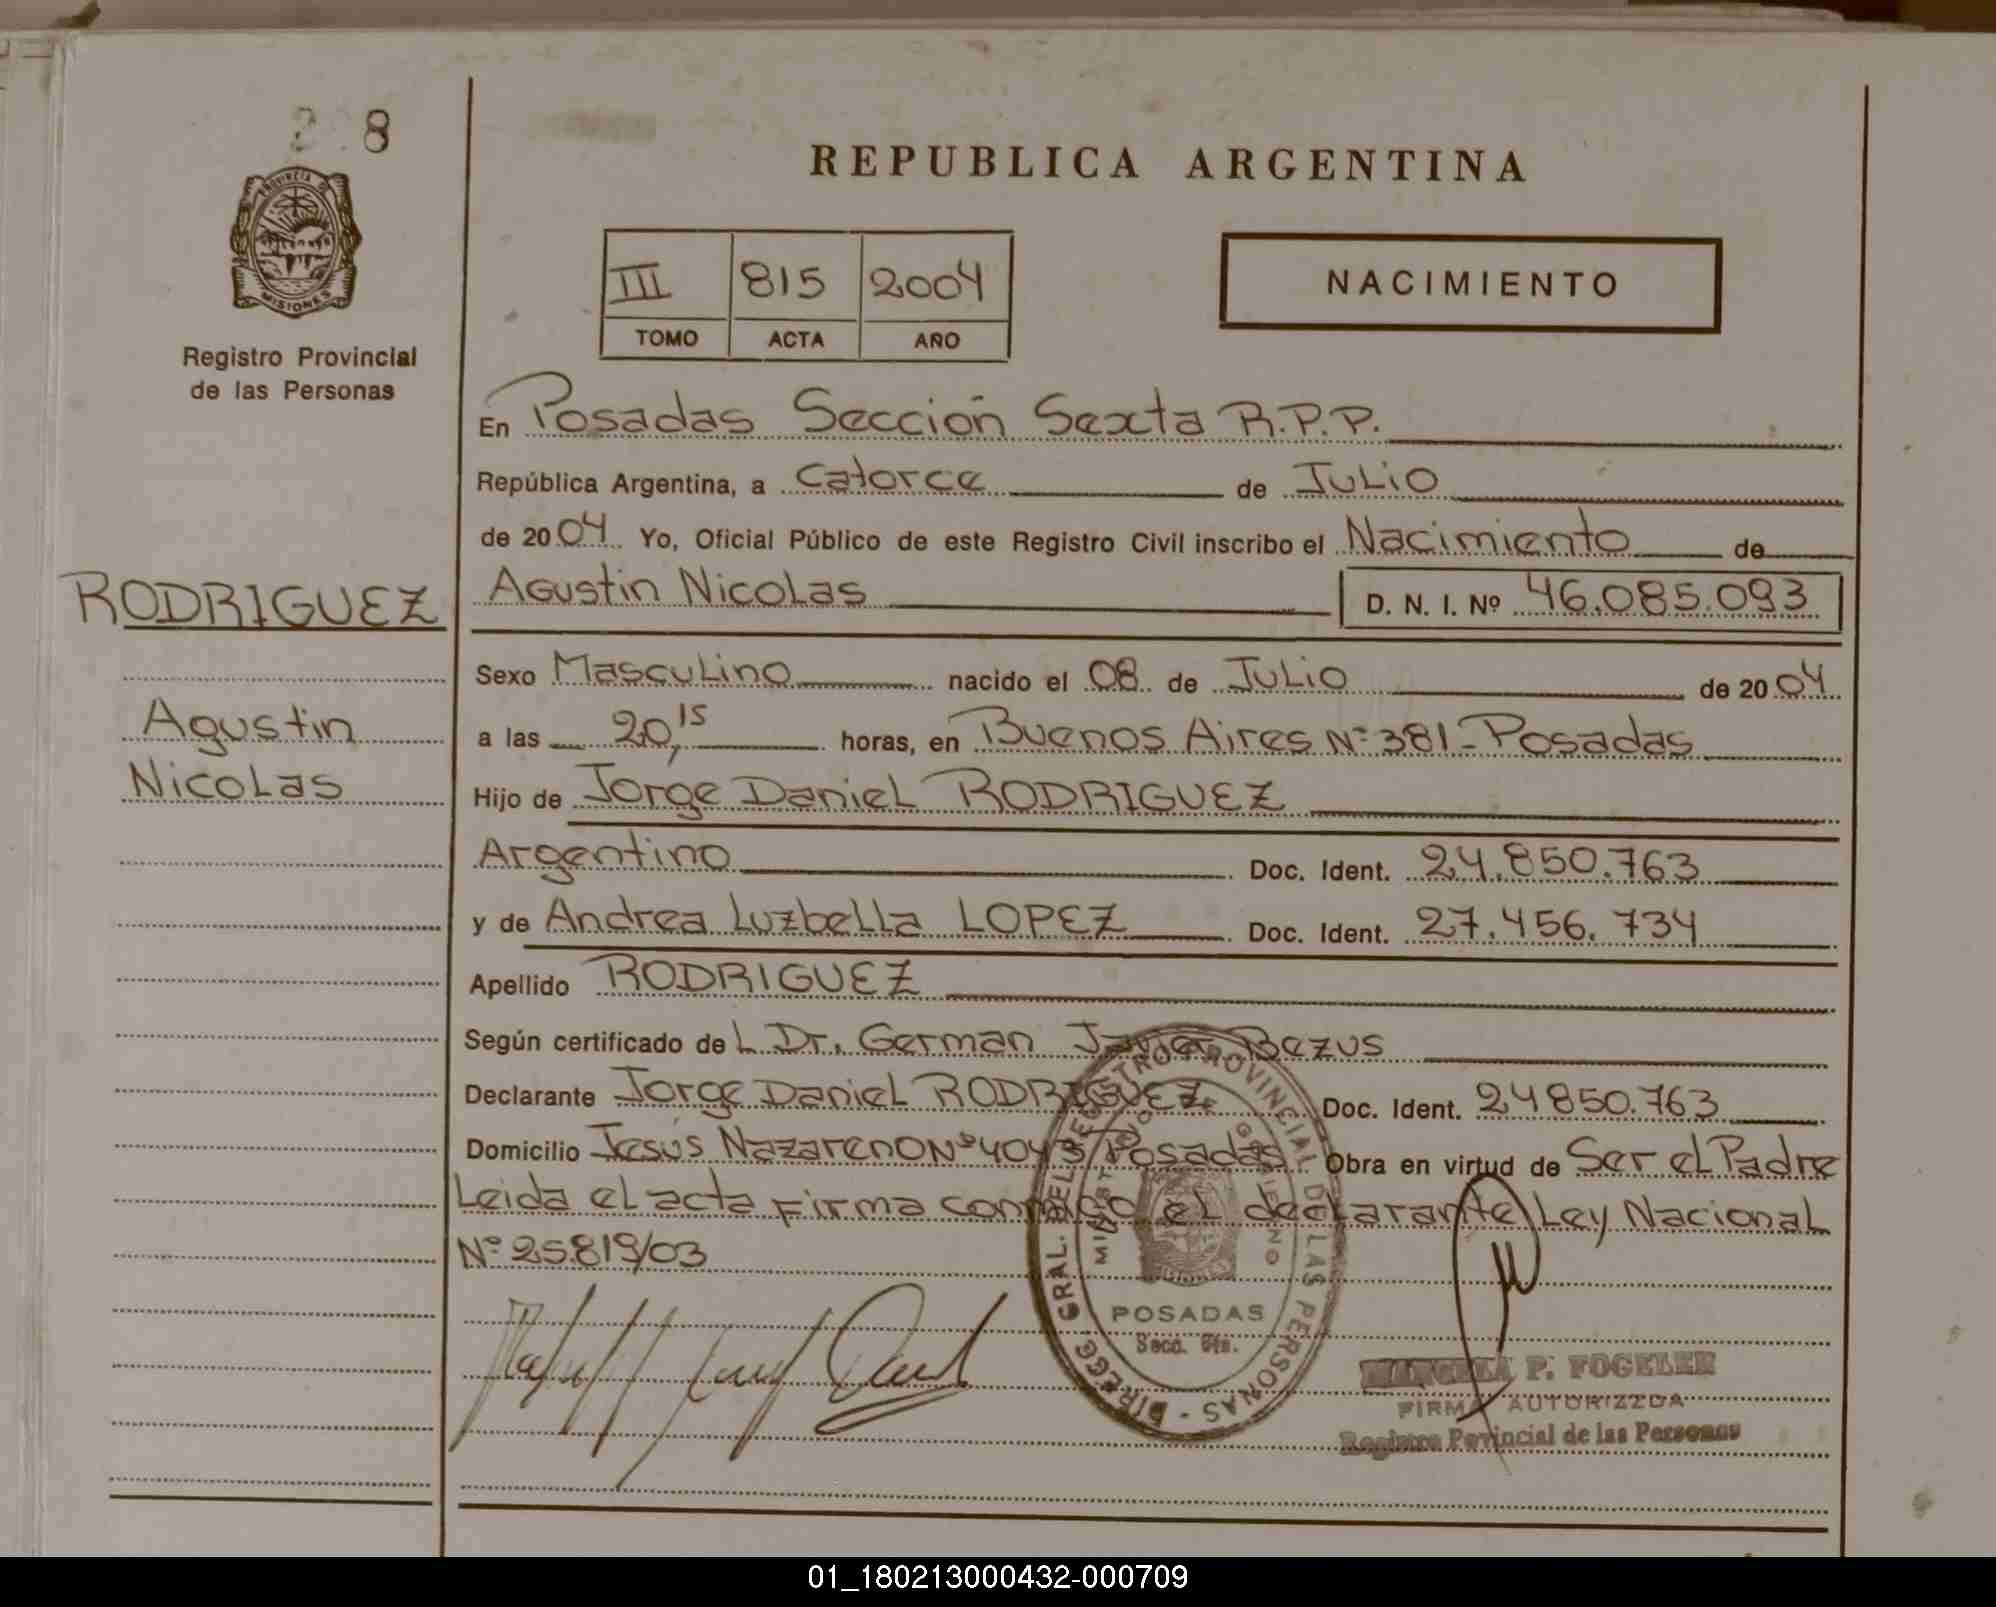 8
PROVINCIA DE
MISIONES
Registro Provincial
de las Personas
RODRIGUEZ
Agustin
Nicolas
REPUBLICA ARGENTINA
III 815 2004
TOMO ACTA AÑO
NACIMIENTO
En Posadas Sección Sexta R.P.P.
República Argentina, a catorce de Julio
de 2004 Yo, Oficial Público de este Registro Civil inscribo el Nacimiento de
Agustin Nicolas D. N. I. Nº 46.085.093
Sexo Masculino nacido el 08 de Julio de 2004
a las 20,15 horas, en Buenos Aires Nº 381 - Posadas
Hijo de Jorge Daniel RODRIGUEZ
Argentino Doc. Ident. 24.850.763
y de Andrea Luzbella LOPEZ Doc. Ident. 27.456.734
Apellido RODRIGUEZ
Según certificado de L Dr. German Javier Bezus
Declarante Jorge Daniel RODRIGUEZ Doc. Ident. 24850.763
Domicilio Jesús Nazareno Nº 4043 Posadas Obra en virtud de Ser el Padre
Leida el acta Firma conmigo el declarante Ley Nacional
Nº 25.819/03
DIRECC. GRAL. DEL REGISTRO PROVINCIAL DE LAS PERSONAS
POSADAS
Secc. 6ta.
P. FOGELER
FIRMA AUTORIZZDA
Registro Povincial de las Personas
01_180213000432-000709